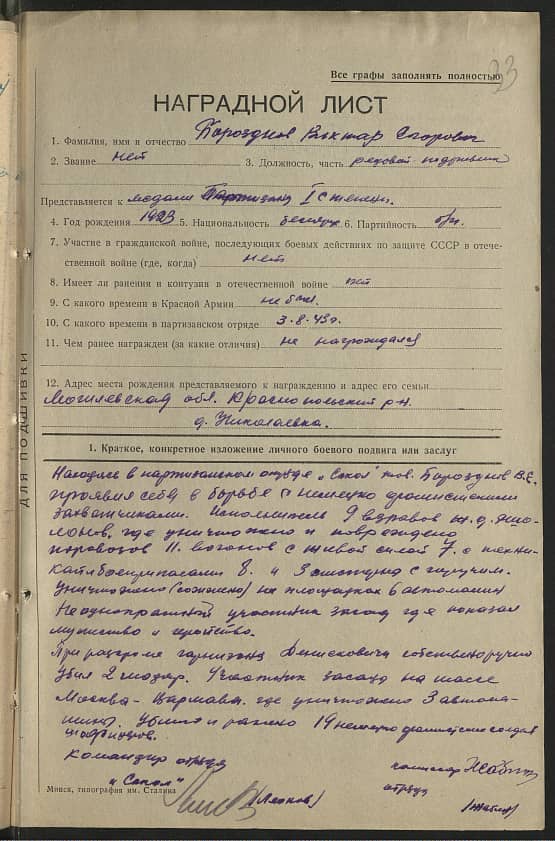 33
Все графы заполнять полностью
НАГРАДНОЙ ЛИСТ
1. Фамилия, имя и отчество Бороздков Виктар Егорович
2. Звание нет 3. Должность, часть рядовой подрывник
Представляется к медали Партизану I степени.
4. Год рождения 1923 5. Национальность белорус 6. Партийность б/п.
7. Участие в гражданской войне, последующих боевых действиях по защите СССР в отече-
ственной войне (где, когда) нет
8. Имеет ли ранения и контузии в отечественной войне нет
9. С какого времени в Красной Армии не был.
10. С какого времени в партизанском отряде 3.8.43г.
11. Чем ранее награжден (за какие отличия) не награждался
12. Адрес места рождения представляемого к награждению и адрес его семьи
Могилевская обл. Краснопольский р-н.
д. Николаевка.
1. Краткое, конкретное изложение личного боевого подвига или заслуг
Находясь в партизанском отряде „Сокол" тов. Бороздков В.Е.
проявил себя в борьбе с немецко фашистскими
захватчиками. Исполнитель 9 взрывов ж.д. эше-
лонов, где уничтожено и повреждено
паровозов 11. вогонов с живой силой 7. с техни-
кай боеприпасами 8. и 3 цистерны с горючим.
Уничтожено (сожжено) на площадках 6 автомашин
Неоднократный участник засад где показал
мужество и геройство.
При разгроме гарнизона Денисковичи собственоручно
убил 2 . Участник засады на шассе
Москва - Варшава. где уничтожено 3 автома-
шины. Убито и ранено 19 немецко фашистских солдат
и офицеров.
командир отряда
„Сокол"
комиссар
отряда
Минск, типография им. Сталина
ДЛЯ ПОДШИВКИ